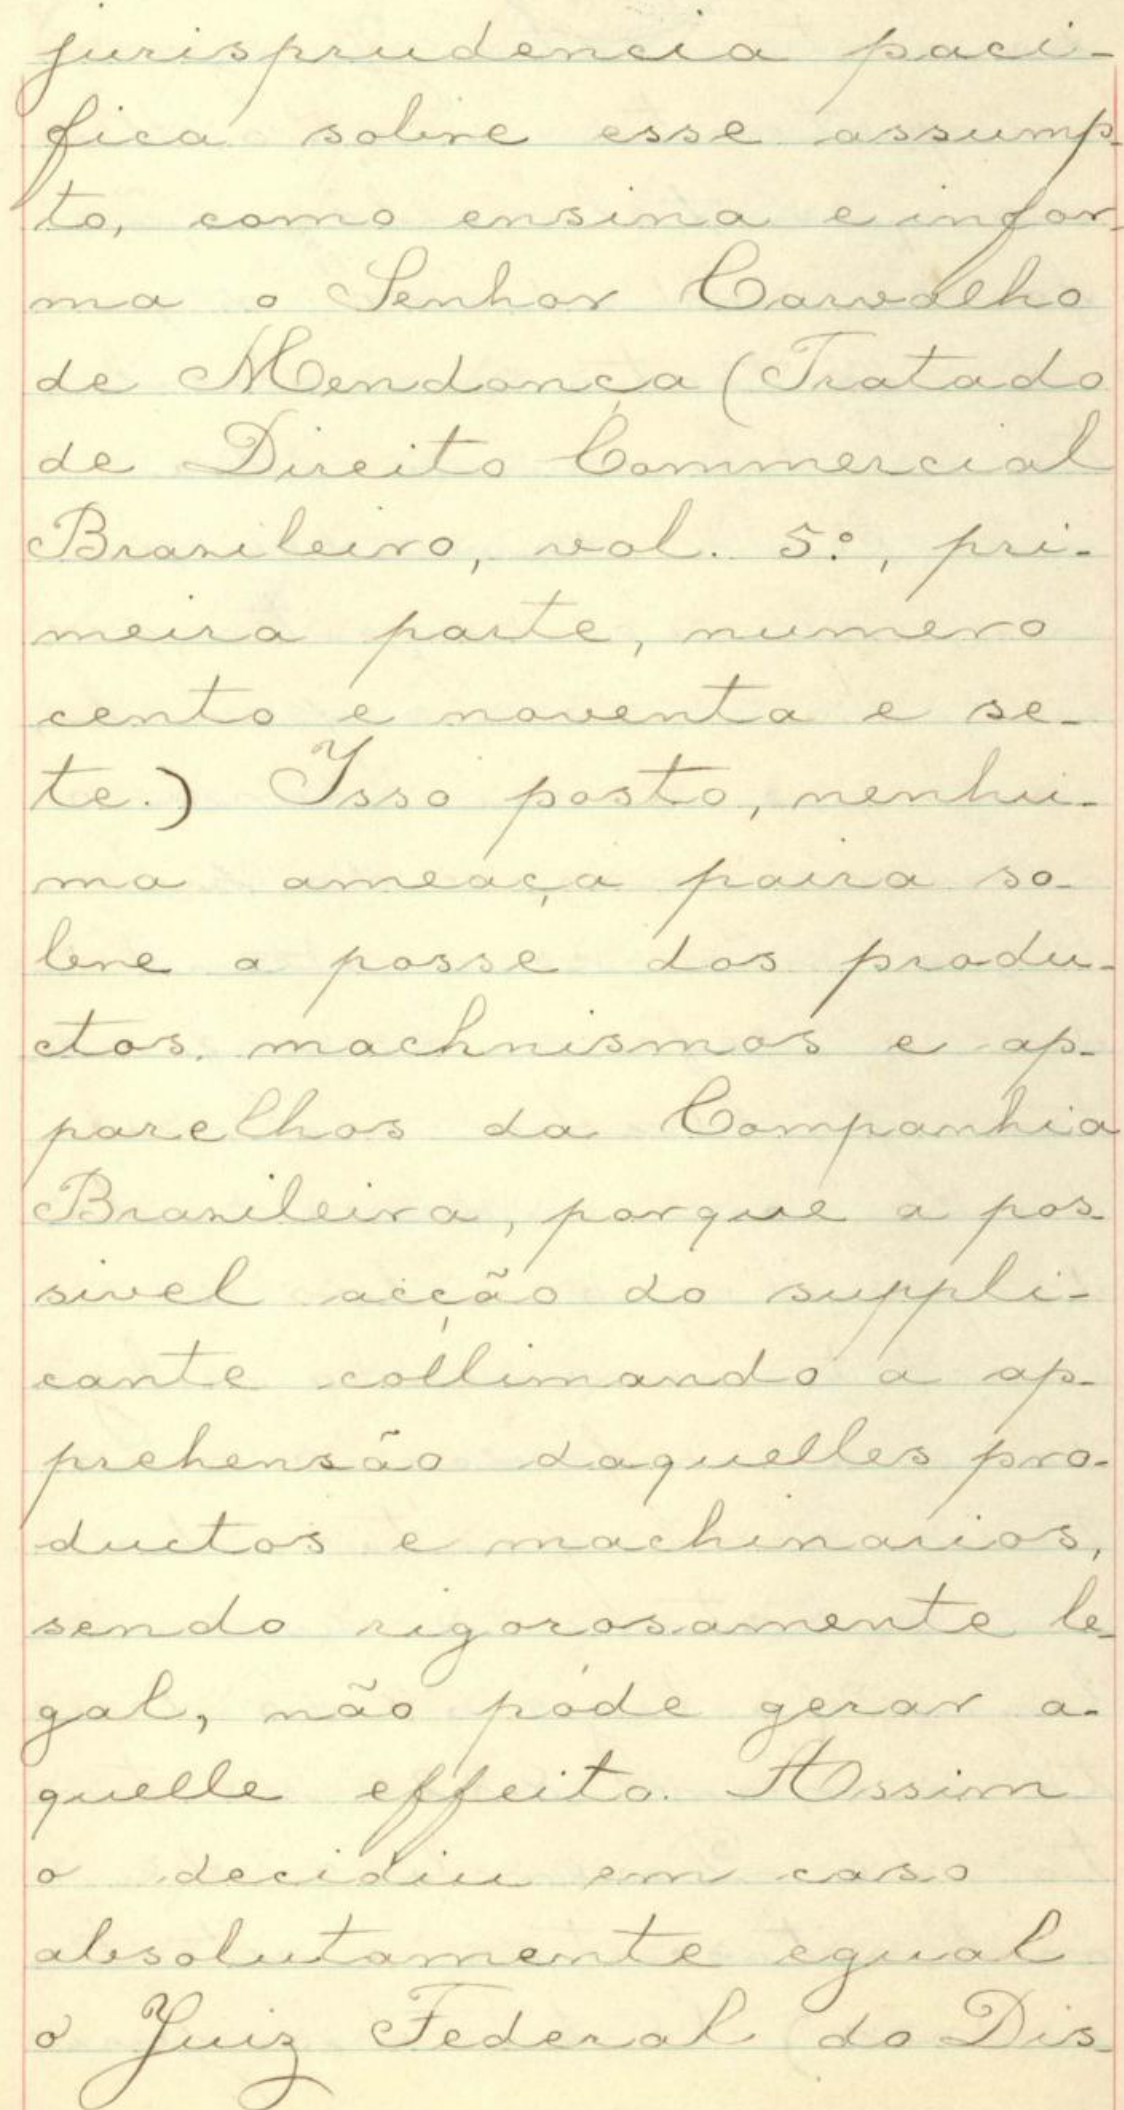 jurisprudencia paci-
fica sobre esse assump-
to, como ensina e infor-
ma o Senhor Carvalho
de Mendonça (Tratado
de Direito Commercial
Brazileiro, vol. 5º, pri-
meira parte, numero
cento e noventa e se-
te.) Isso posto, nenhu-
ma ameaça paira so-
bre a posse dos produ-
ctos. machnismos e ap-
parelhos da Companhia
Brazileira, porque a pos-
sivel acção do suppli-
cante collimando a ap-
prehensão daquelles pro-
ductos e machinarios,
sendo rigorosamente le-
gal, não póde gerar a-
quelle effeito. Assim
o decidiu em caso
absolutamente egual
o Juiz Federal do Dis-